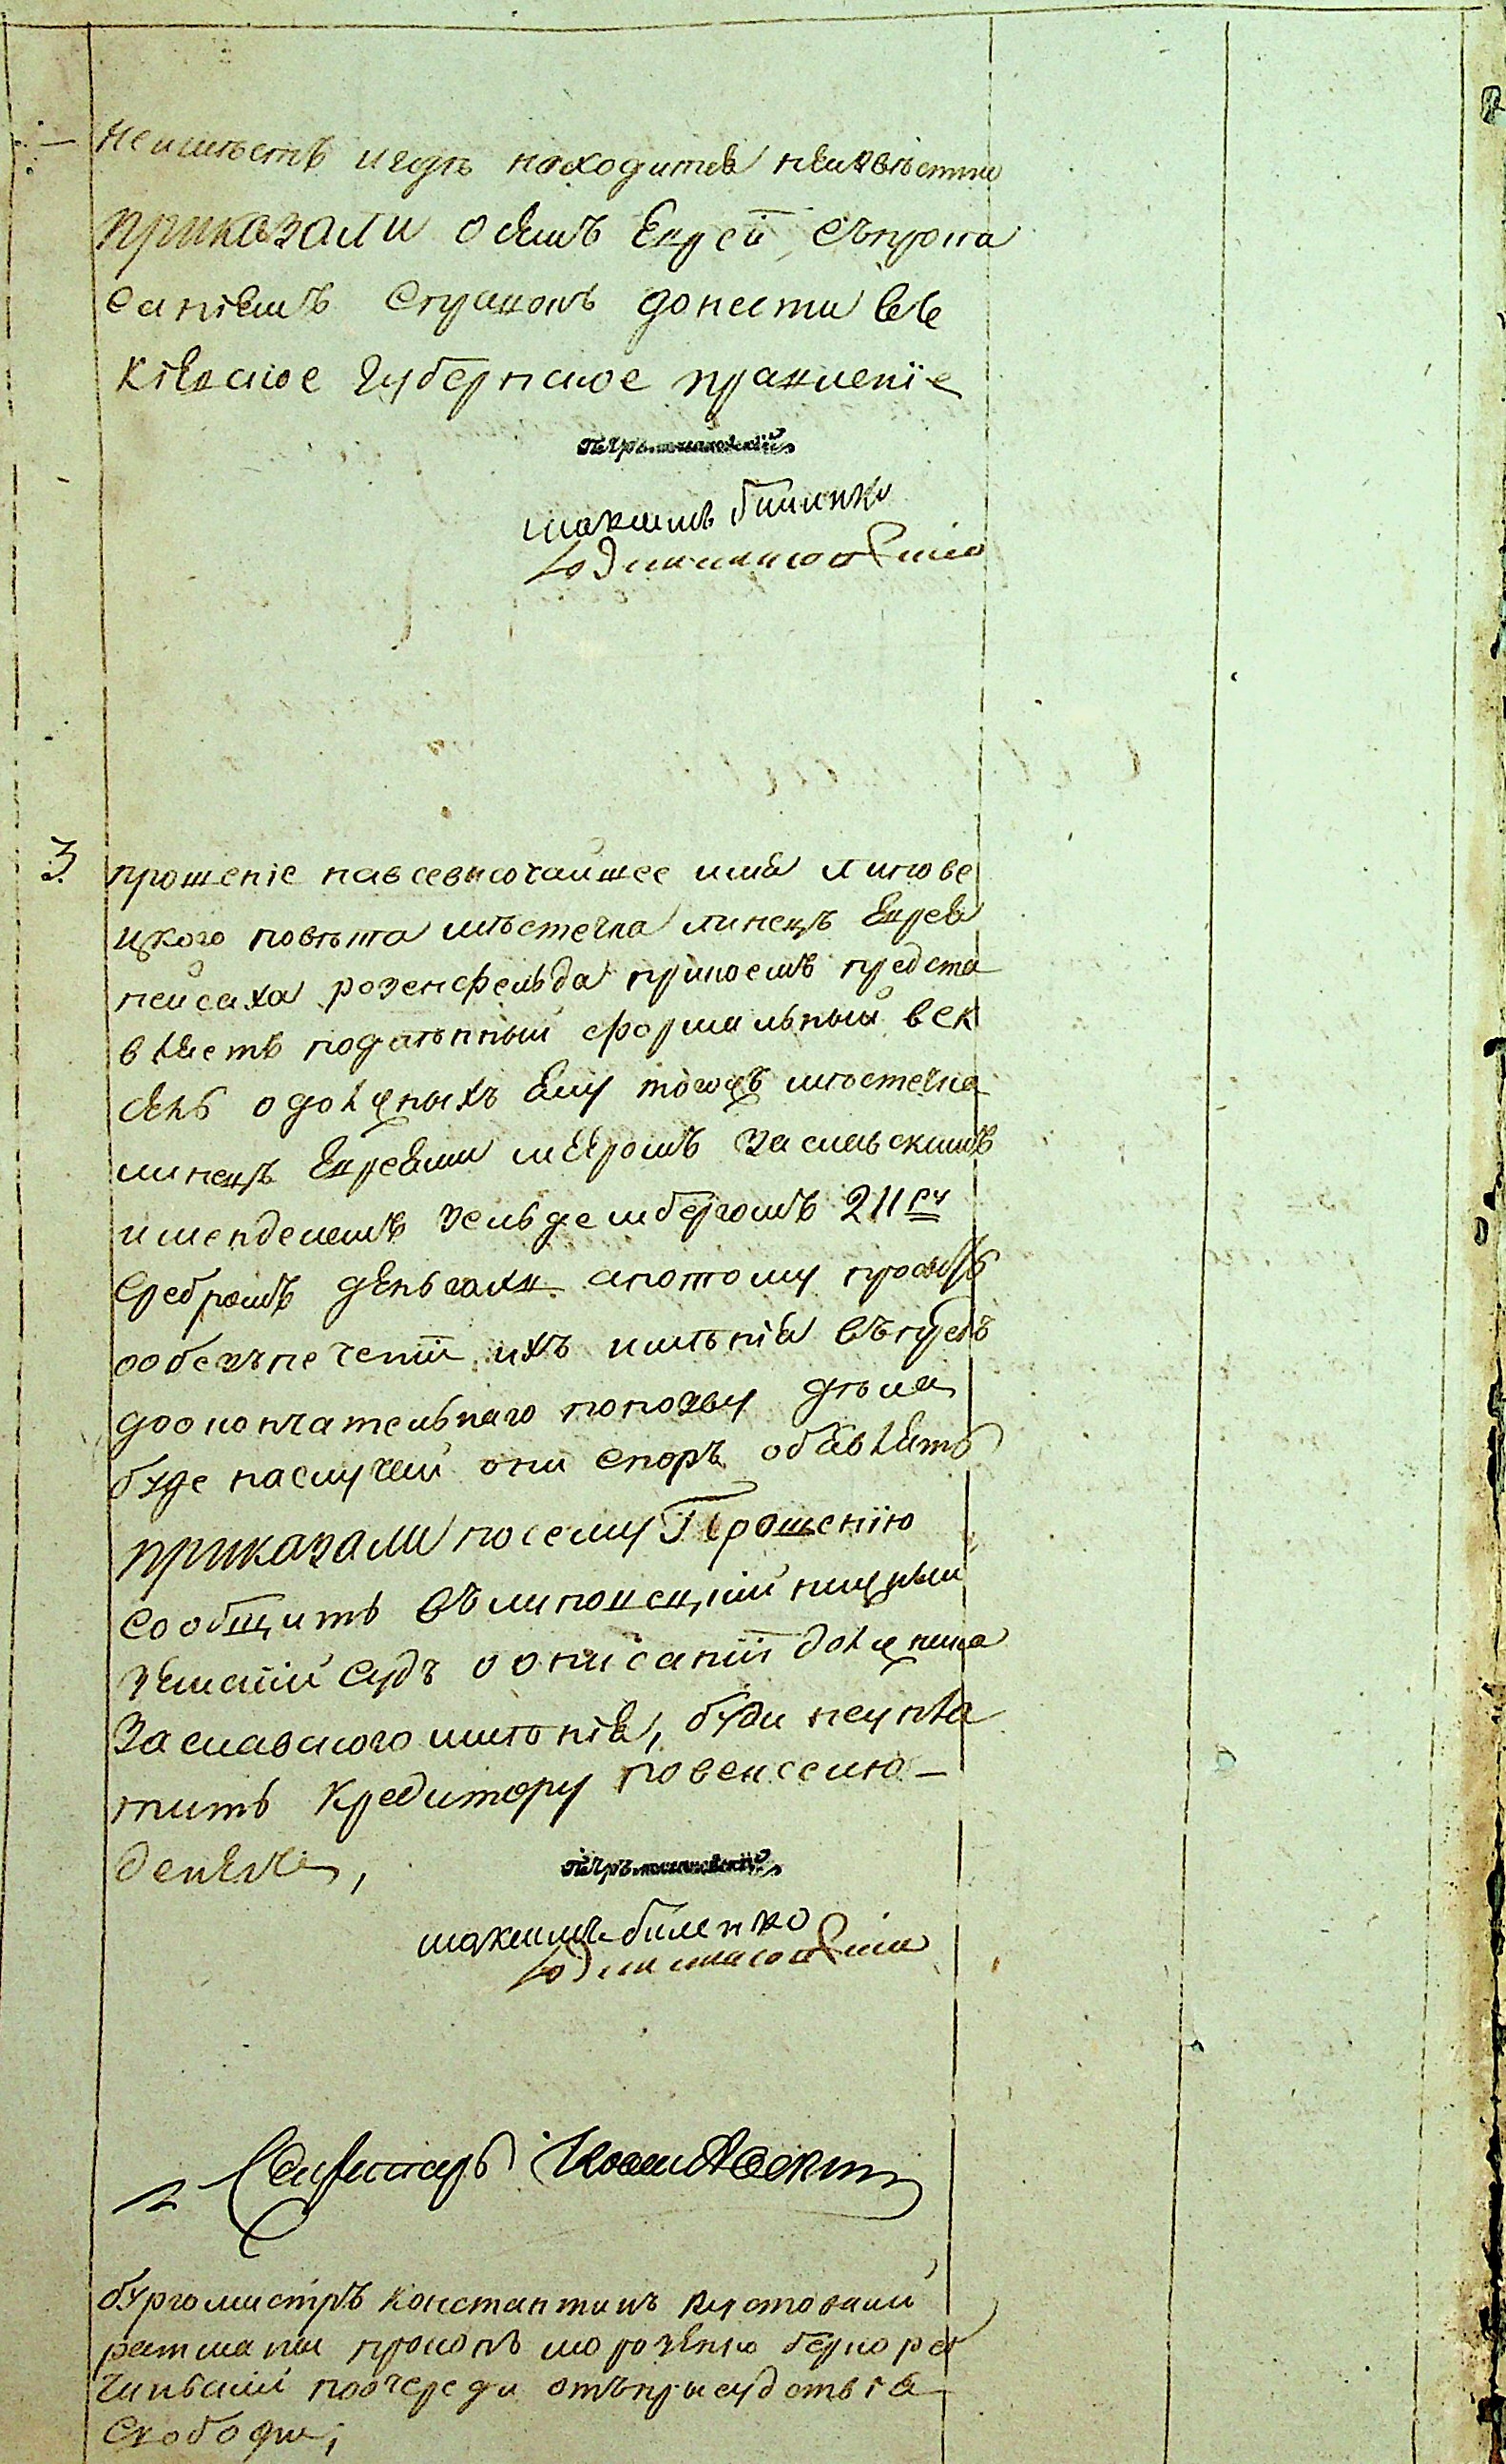 неимѣетъ игдѣ находится неизвѣстни
приказали осемъ Евреи, съпропи
саніемъ Справокъ донести вЪ
Кіевское Губернское правленіе
максимъ биленко
3 прошеніе навсевысочайшее имя липове
цкого повѣта мѣстечка линецъ Еврея
пейсаха розенфельда приносимъ предста
вляетъ поданный формальный век
сель одолжныхъ Ему тогожъ мѣстечка
линецъ Евреями меромъ Заславскимъ
именделемъ Зельде мбергомъ 211 ру
Сребромъ деньгахъ апотому проситъ
ообезпеченіи ихъ имѣнія въпредь
доокончательнаго попозву дѣла
буде наслучай они споръ обавлять
приказали посему Прошенію
Сообщить въ липовецкій нижный
земскій судъ оописаніи должника
Заславского имѣнія, буди неупла
тить Кредитору повексслю
денегъ,
максимъ биленко
Секретарь
бургомистръ Константинъ кустовскій
ратманы прокопъ мороченко
поочереди отъприсудствія
Свободны,